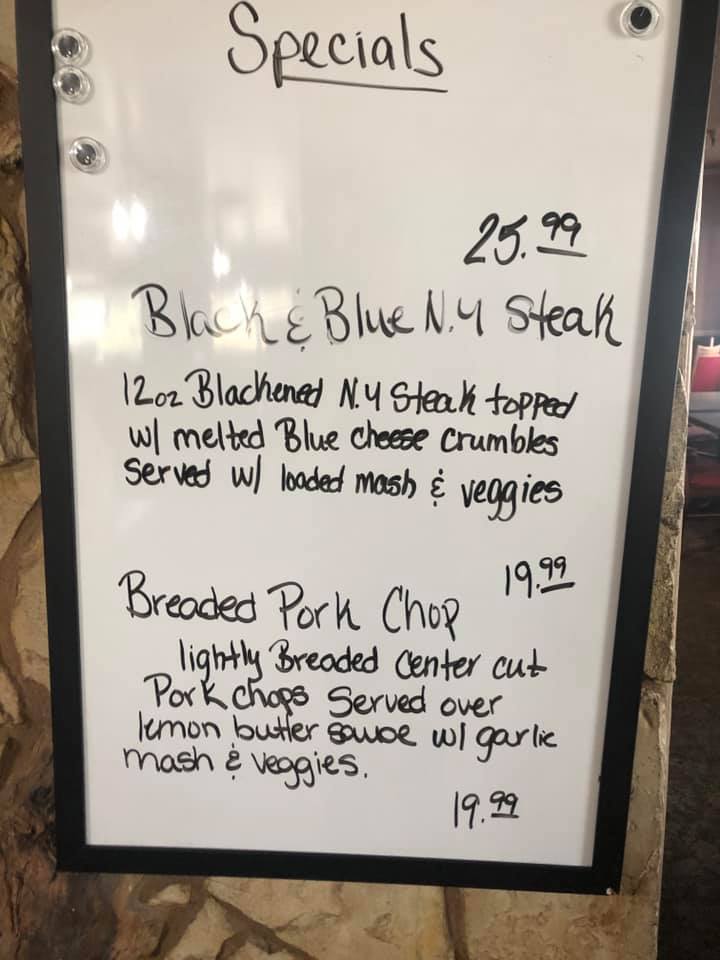 Specials
25.99
Black & Blue N.Y Steak
12oz Blackened N.Y Steak topped
w/ melted Blue cheese crumbles
Served w/ loaded mash & veggies
19.99
Breaded Pork Chop
lightly Breaded center cut
Pork chops Served over
lemon butter sauce w/ garlic
mash & veggies.
19.99